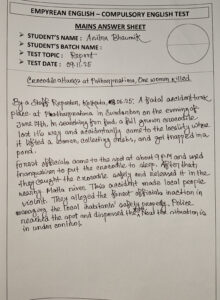 EMPYREAN ENGLISH – COMPULSORY ENGLISH TEST
MAINS ANSWER SHEET
➤ STUDENT'S NAME : Anitra Bhaumik
➤ STUDENT'S BATCH NAME :
➤ TEST TOPIC : Report
➤ TEST DATE : 09.11.25
Crocodile attacks at Patharpratima, One women killed
By a Staff Reporter, .06.25: A fatal accident took
place at Patharpratima in Sundarban on the evening of
June 24th. In searching for food a full grown crocodile
lost it's way and accidentally came to the locality where
it killed a women, collecting crabs, and got trapped in a
pond.
Forest officials came to the spot at about 9 P.M and used
tranquilizer to put the crocodile to sleep. After that,
they caught the crocodile safely and released it in the
nearby Matla river. This accident made local people
violent. They alleged the forest officials inaction in
the local habitants' safety properly. Police
reached the spot and dispersed the. Now the situation is
in under control.